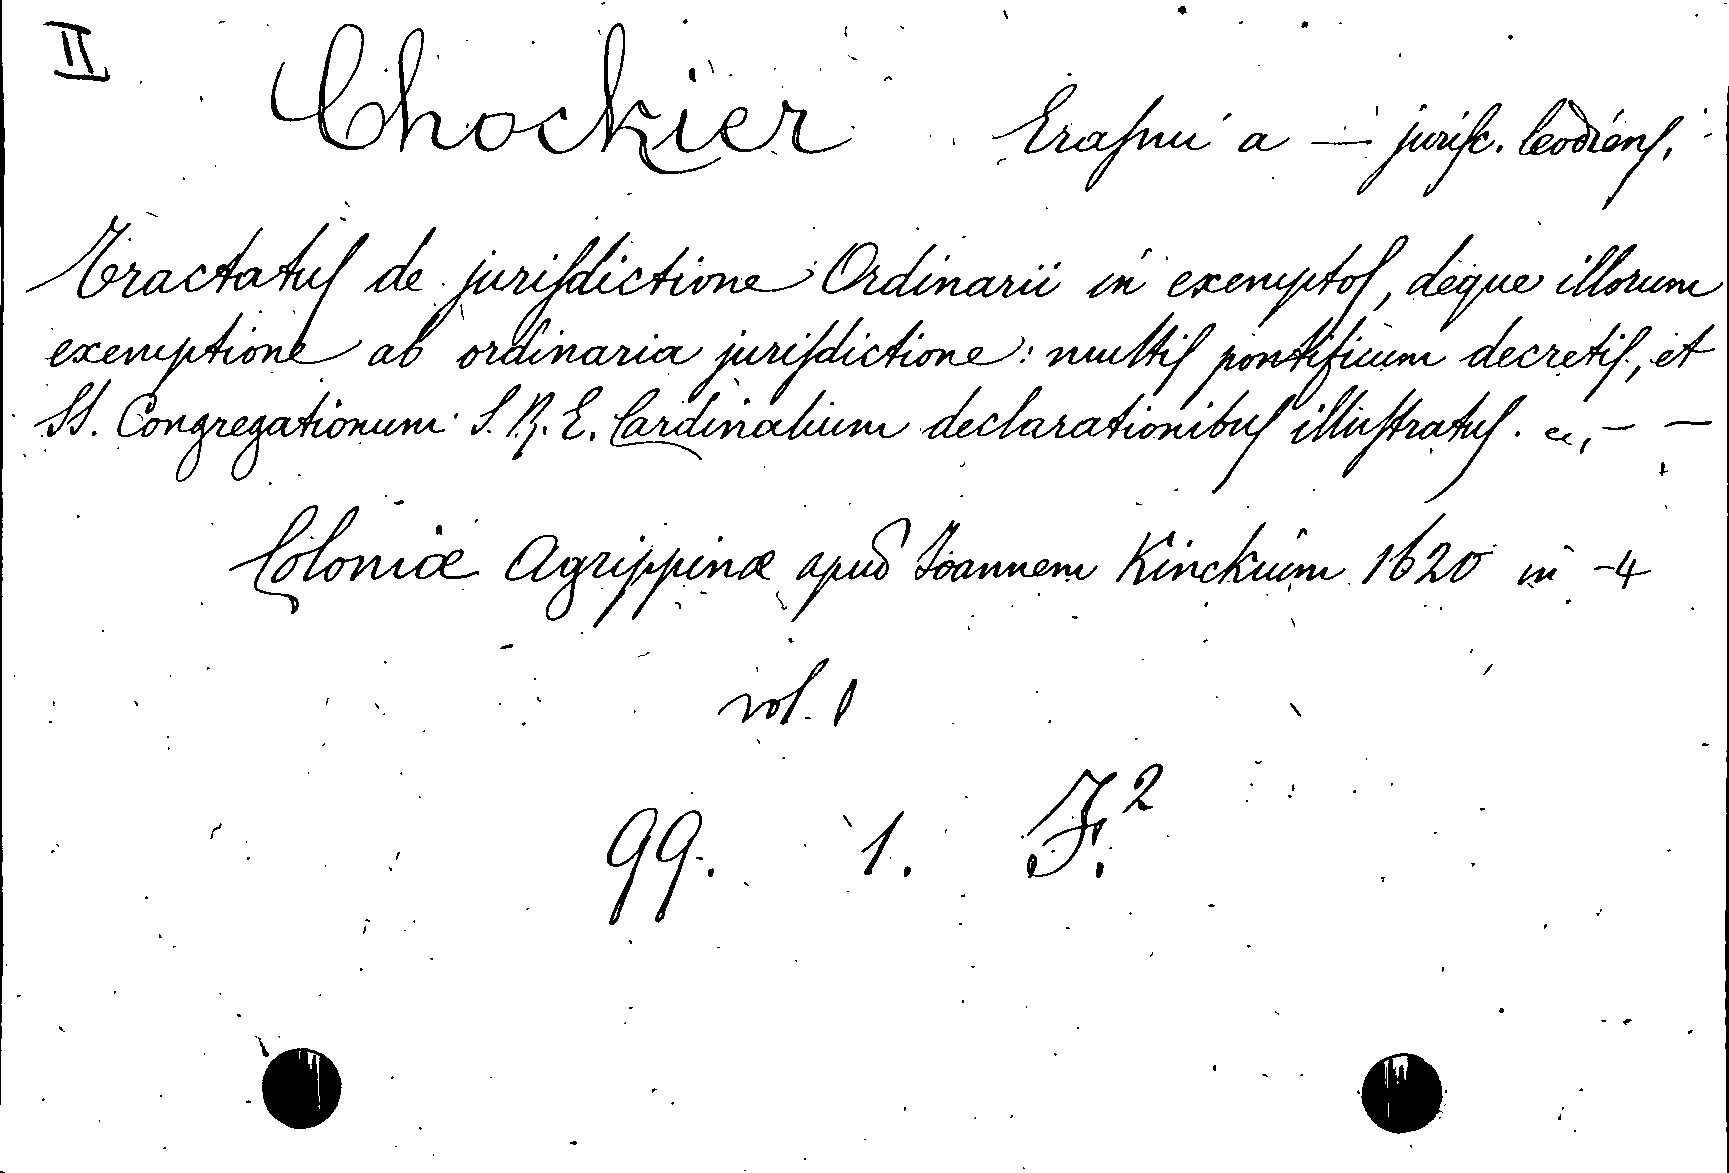 II
Chockier Erasmi a — jurisc. leodiens.
Tractatus de jurisdictione Ordinarii in exemptos, deque illorum
exemptione ab ordinaria jurisdictione: multis pontificum decretis, et
SS. Congregationum S. R. E. Cardinalium declarationibus illustratus.
Coloniæ Agrippinæ apud Joannem Kinckium 1620 in -4
vol. 1
99. 1. F.²